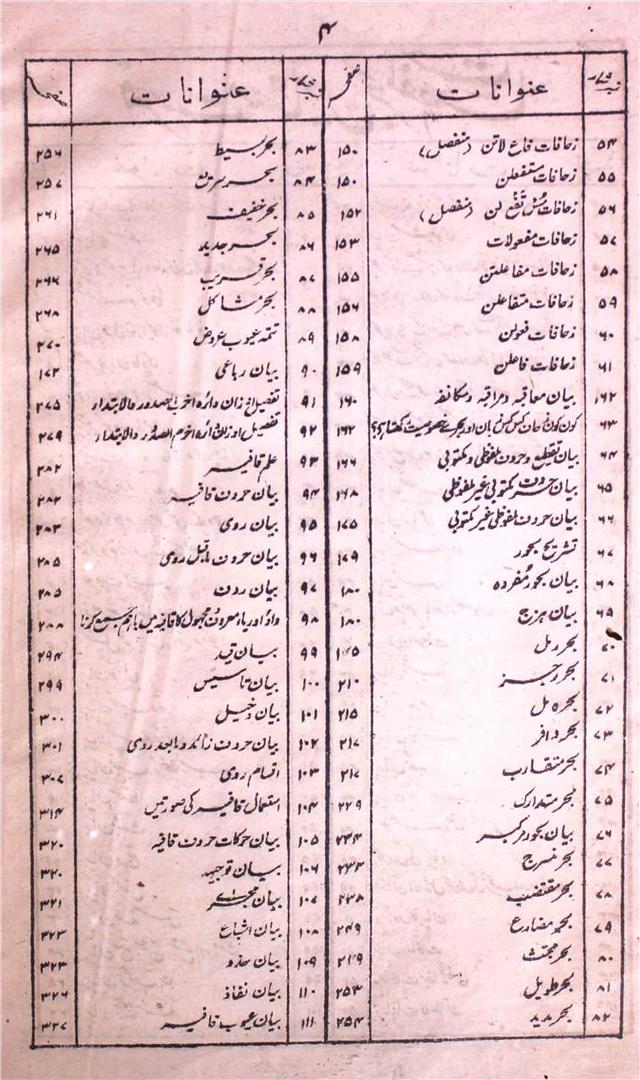 ۴
نمبر شمار عنوانات صفحہ
۵۴ زحافات فاع لاتن (منفصل) ۱۵۰
۵۵ زحافات مستفعلن ۱۵۰
۵۶ زحافات مُس تَفْعِ لن (منفصل) ۱۵۲
۵۷ زحافات مفعولات ۱۵۳
۵۸ زحافات مفاعلتن ۱۵۵
۵۹ زحافات متفاعلن ۱۵۶
۶۰ زحافات فعولن ۱۵۸
۶۱ زحافات فاعلن ۱۵۹
۱۶۲ بیان معاقبہ ومراقبہ ومکانفہ ۱۶۰
۶۳ کون کون زحاف کس کس رکن اور بحر سے خصوصیت رکھتا ہے؟ ۱۶۲
۶۴ بیان تقطیع وحروف ملفوظی ومکتوبی ۱۶۶
۶۵ بیان حروف مکتوبی غیر ملفوظی ۱۶۸
۶۶ بیان حروف ملفوظی غیر مکتوبی ۱۷۵
۶۷ تشریح بحور ۱۷۹
۶۸ بیان بحور مُفردہ ۱۸۰
۶۹ بیان ہزج ۱۸۰
۷۰ بحر رمل
۷۱ بحر رجز ۲۱۰
۷۲ بحر کامل ۲۱۵
۷۳ بحر وافر ۲۱۷
۷۴ بحر متقارب ۲۱۷
۷۵ بحر متدارک ۲۲۹
۷۶ بیان بحور مرکبہ ۲۳۴
۷۷ بحر منسرح ۲۳۳
۷۸ بحر مقتضب ۲۳۸
۷۹ بحر مضارع ۲۴۹
۸۰ بحر مجتث ۲۴۹
۸۱ بحر طویل ۲۵۳
۸۲ بحر مدید ۲۵۴
نمبر شمار عنوانات صفحہ
۸۳ بحر بسیط ۲۵۶
۸۴ بحر سریع ۲۵۷
۸۵ بحر خفیف ۲۶۱
۸۶ بحر جدید ۲۶۵
۸۷ بحر قریب ۲۶۶
۸۸ بحر مشاکل ۲۶۸
۸۹ تتمہ عیوب عروض ۲۷۰
۹۰ بیان رباعی ۱۷۲
۹۱ تفصیل اوزان دائرہ اخرب الصدور والابتدار ۲۷۵
۹۲ تفصیل اوزان دائرہ اخرم الصدور والابتدار ۲۷۹
۹۳ علم قافیہ ۲۸۲
۹۴ بیان حروف قافیہ ۲۸۲
۹۵ بیان روی ۲۸۳
۹۶ بیان حروف ماقبل روی ۲۸۵
۹۷ بیان ردف ۲۸۵
۹۸ واؤ اور یاء معروف ومجہول کا قافیہ میں باہم جمع کرنا ۲۸۸
۹۹ بیان قید ۲۹۴
۱۰۰ بیان تاسیس ۲۹۹
۱۰۱ بیان دخیل ۳۰۰
۱۰۲ بیان حروف زائد ومابعد روی ۳۰۱
۱۰۳ اقسام روی ۳۰۷
۱۰۴ استعمال قافیہ کی صورتیں ۳۱۴
۱۰۵ بیان حرکات حروف قافیہ ۳۲۰
۱۰۶ بیان توجیہ ۳۲۰
۱۰۷ بیان مجریٰ ۳۲۱
۱۰۸ بیان اشباع ۳۲۳
۱۰۹ بیان حذو ۳۲۳
۱۱۰ بیان نفاذ ۳۲۶
۱۱۱ بیان عیوب قافیہ ۳۲۷